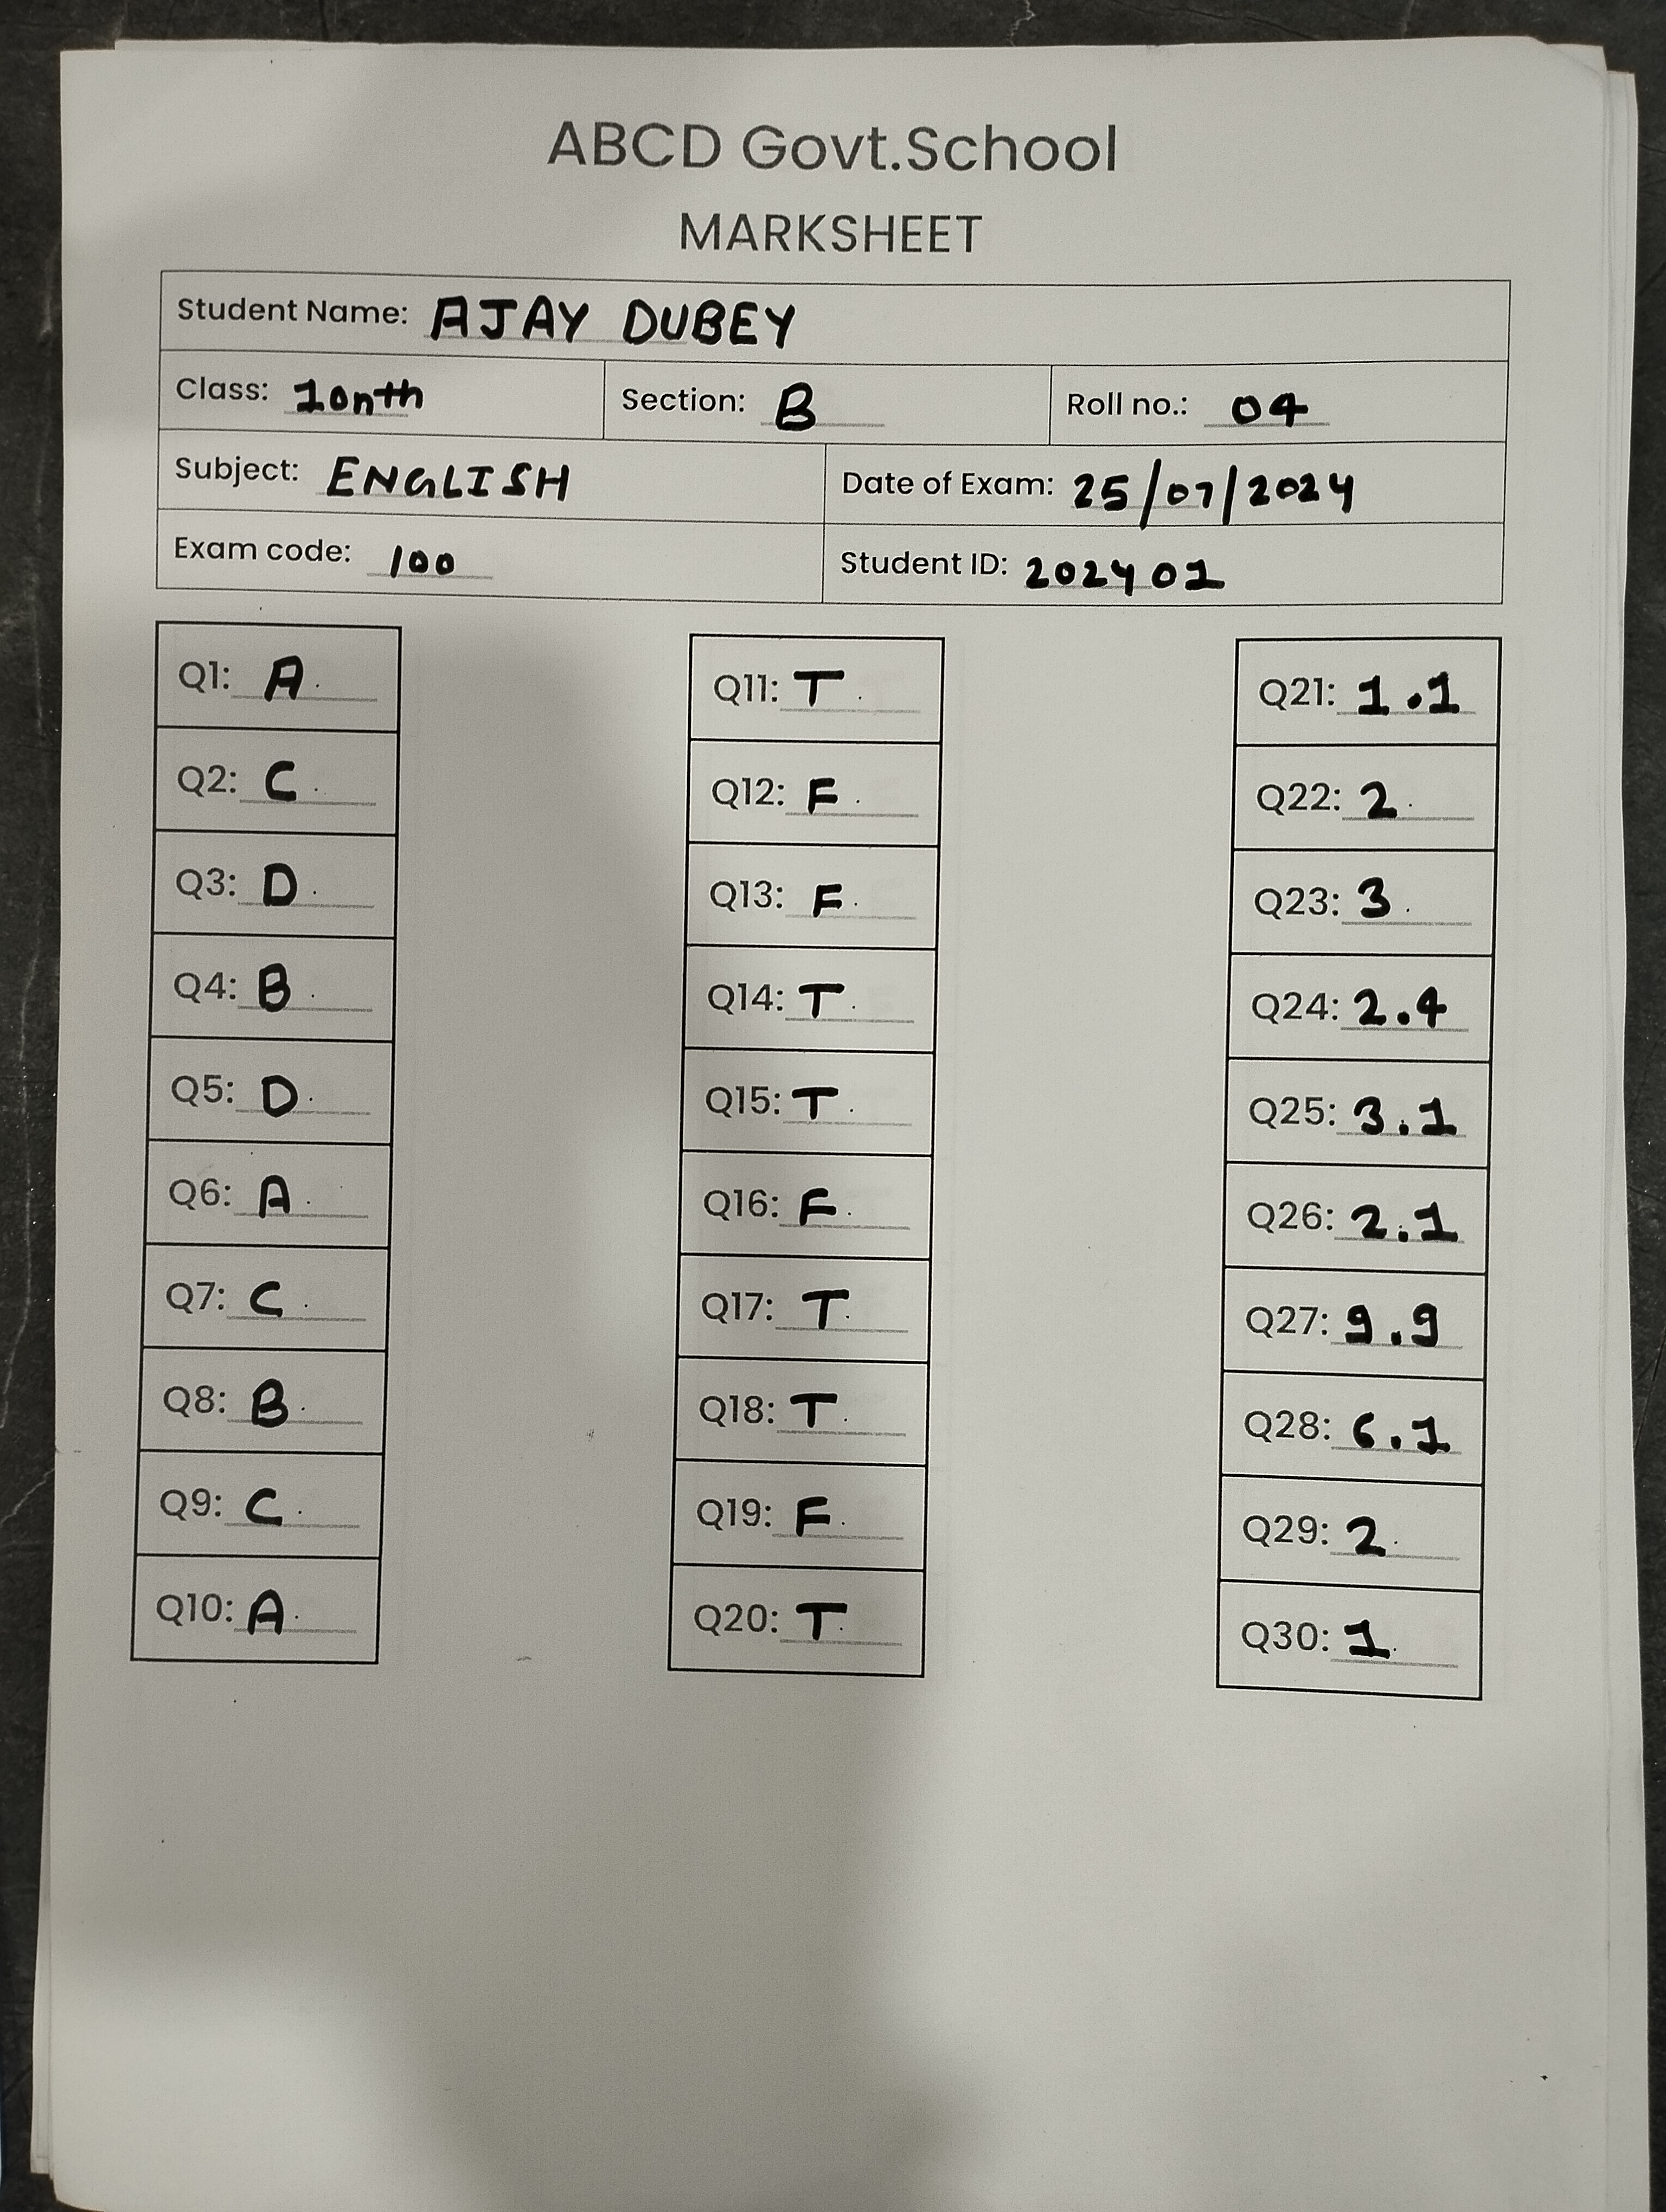 ABCD Govt.School
MARKSHEET
Student Name: AJAY DUBEY
Class: 10nth Section: B Roll no.: 04
Subject: ENGLISH Date of Exam: 25/07/2024
Exam code: 100 Student ID: 202401
Q1: A
Q2: C
Q3: D
Q4: B
Q5: D
Q6: A
Q7: C
Q8: B
Q9: C
Q10: A
Q11: T
Q12: F
Q13: F
Q14: T
Q15: T
Q16: F
Q17: T
Q18: T
Q19: F
Q20: T
Q21: 1.1
Q22: 2
Q23: 3
Q24: 2.4
Q25: 3.1
Q26: 2.1
Q27: 9.9
Q28: 6.1
Q29: 2
Q30: 1